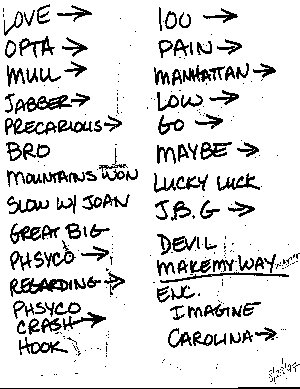 LOVE →
OPTA →
MULL →
JABBER →
PRECARIOUS →
BRO
MOUNTAINS WON
SLOW W/ JOAN
GREAT BIG
PHSYCO →
REGARDING →
PHSYCO
CRASH →
HOOK
100 →
PAIN →
MANHATTAN →
LOW →
GO →
MAYBE →
LUCKY LUCK
J.B.G →
DEVIL
MAKEMY WAY
ENC.
IMAGINE
CAROLINA →